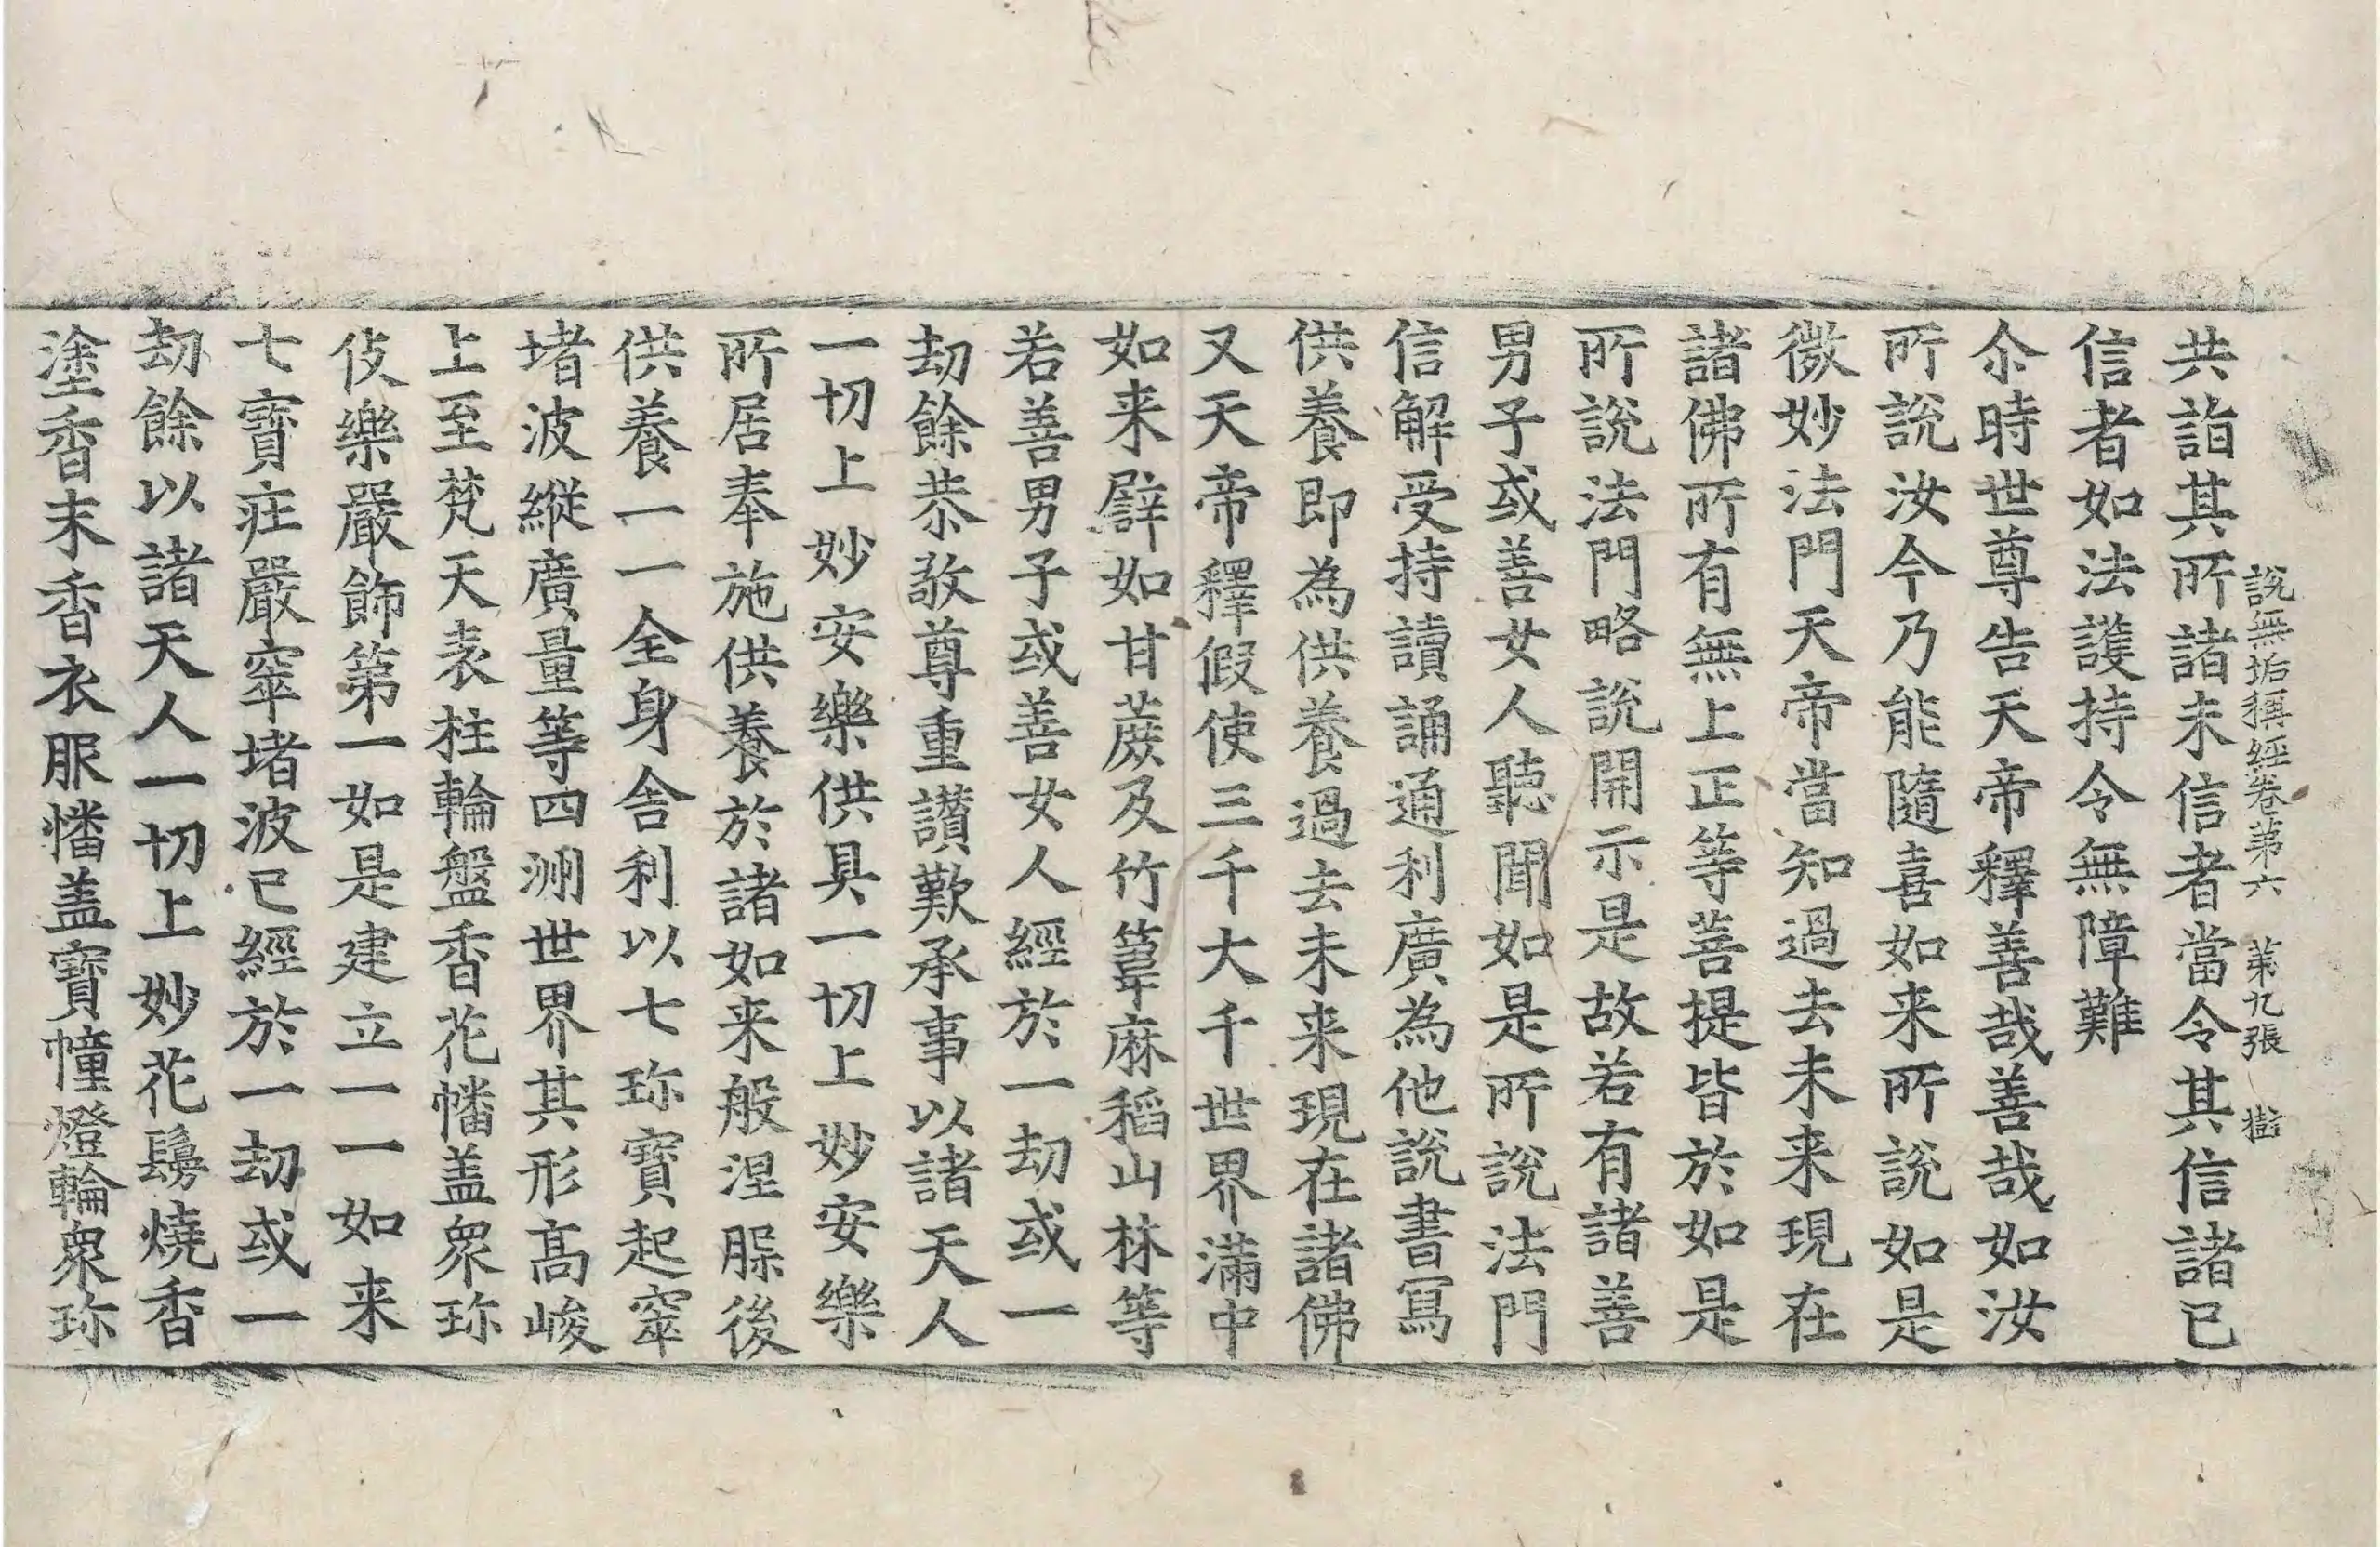 說無垢稱經卷第六　第九張　樹
共詣其所諸未信者當令其信諸已
信者如法護持令無障難
尒時世尊告天帝釋善哉善哉如汝
所說汝今乃能隨喜如来所說如是
微妙法門天帝當知過去未来現在
諸佛所有無上正等菩提皆於如是
所說法門略說開示是故若有諸善
男子或善女人聽聞如是所說法門
信解受持讀誦通利廣為他說書寫
供養即為供養過去未来現在諸佛
又天帝釋假使三千大千世界滿中
如来譬如甘蔗及竹葦麻稻山林等
若善男子或善女人經於一劫或一
劫餘恭敬尊重讃歎承事以諸天人
一切上妙安樂供具一切上妙安樂
所居奉施供養於諸如来般涅脲後
供養一一全身舎利以七珎寶起窣
堵波縱廣量等四洲世界其形高峻
上至梵天表柱輪盤香花幡盖衆珎
伎樂嚴飾第一如是建立一一如来
七寶庄嚴窣堵波已經於一劫或一
劫餘以諸天人一切上妙花鬘燒香
塗香末香衣服幡盖寶幢燈輪衆珎